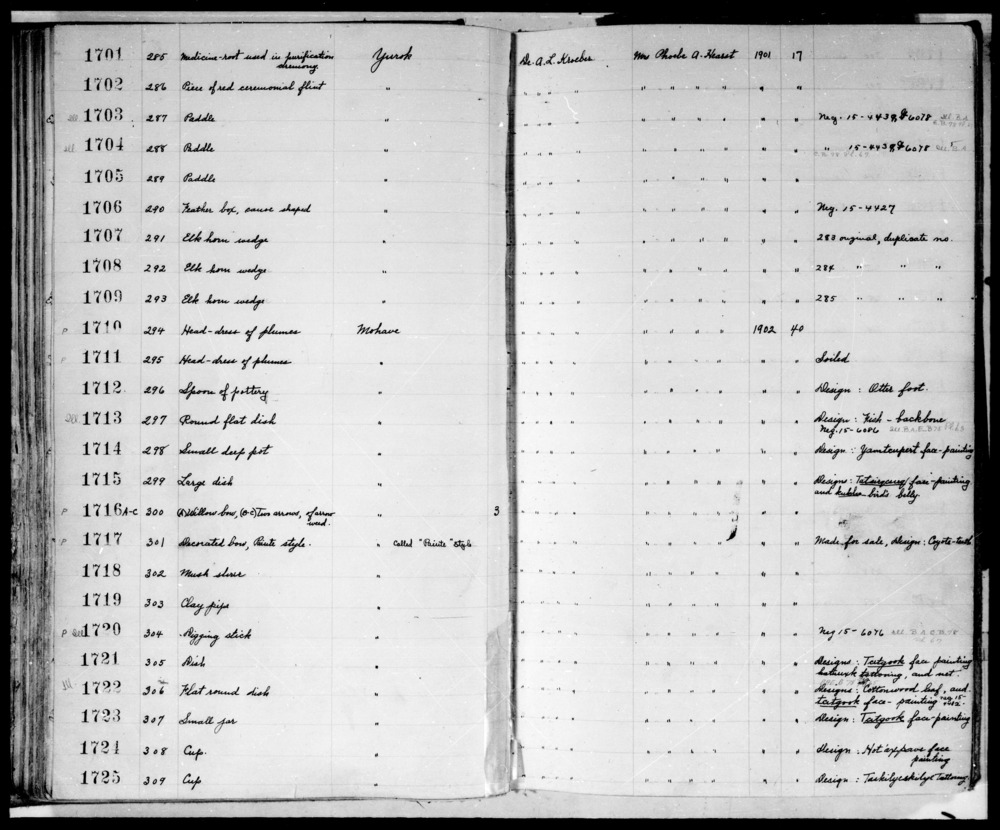 1701 285 Medicine-root used in purification ceremony. Yurok Dr. A. L. Kroeber Mrs Phoebe A. Hearst 1901 17
1702 286 Piece of red ceremonial flint " " " " " " " " " " "
1703 287 Paddle " " " " " " " " " " " Neg. 15-4439, & 6078
1704 288 Paddle " " " " " " " " " " " " 15-4439, & 6078
1705 289 Paddle " " " " " " " " " " "
1706 290 Feather box, canoe shaped " " " " " " " " " " " Neg. 15-4427
1707 291 Elk horn wedge " " " " " " " " " " " 283 original, duplicate no.
1708 292 Elk horn wedge " " " " " " " " " " " 284 " " "
1709 293 Elk horn wedge " " " " " " " " " " " 285 " " "
P 1710 294 Head-dress of plumes Mohave " " " " " " " " 1902 40
P 1711 295 Head-dress of plumes " " " " " " " " " " " Soiled
1712 296 Spoon of pottery " " " " " " " " " " " Design: Otter foot.
Ill 1713 297 Round flat dish " " " " " " " " " " " Design: Fish-backbone
Neg. 15-6086
1714 298 Small deep pot " " " " " " " " " " " Design: Yamtcupert face-painting
1715 299 Large dish " " " " " " " " " " " Designs: face-painting
and bird's belly.
P 1716 A-C 300 (A) Willow bow, (B-C) Two arrows, of arrow weed. " 3 " " " " " " " " " "
P 1717 301 Decorated bow, Paiute style. " Called "Paiute" style " " " " " " " " " " Made for sale, Design: Coyote-teeth
1718 302 Mush stirrer " " " " " " " " " " "
1719 303 Clay pipe " " " " " " " " " " "
P Ill 1720 304 Digging stick " " " " " " " " " " " Neg 15-6076
1721 305 Dish " " " " " " " " " " " Designs: Tatgook face painting
tattooing, and net.
Ill 1722 306 Flat round dish " " " " " " " " " " " Designs: Cottonwood leaf, and
tatgook face-painting
1723 307 Small jar " " " " " " " " " " " Design: Tatgook face-painting
1724 308 Cup. " " " " " " " " " " " Design: face
painting
1725 309 Cup " " " " " " " " " " " Design: Tattooing.